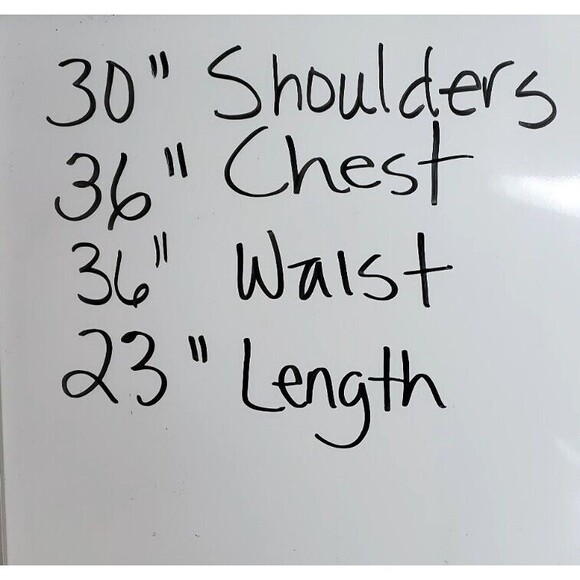 30" Shoulders
36" Chest
36" Waist
23" Length